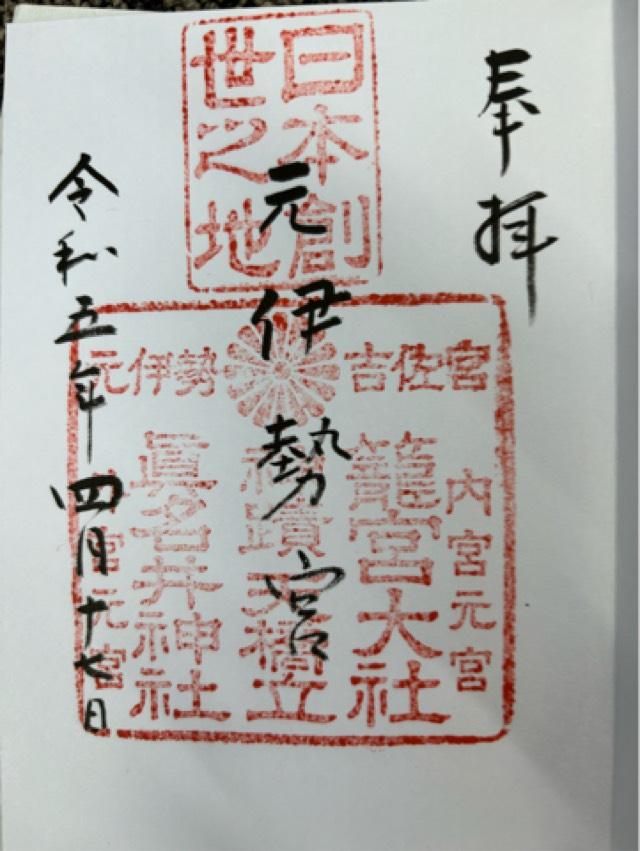 奉拝
日本創
世之地
元伊勢宮
元伊勢 吉佐宮
内宮元宮
籠宮大社
神蹟天橋立
眞名井神社
宮元宮
令和五年四月十七日